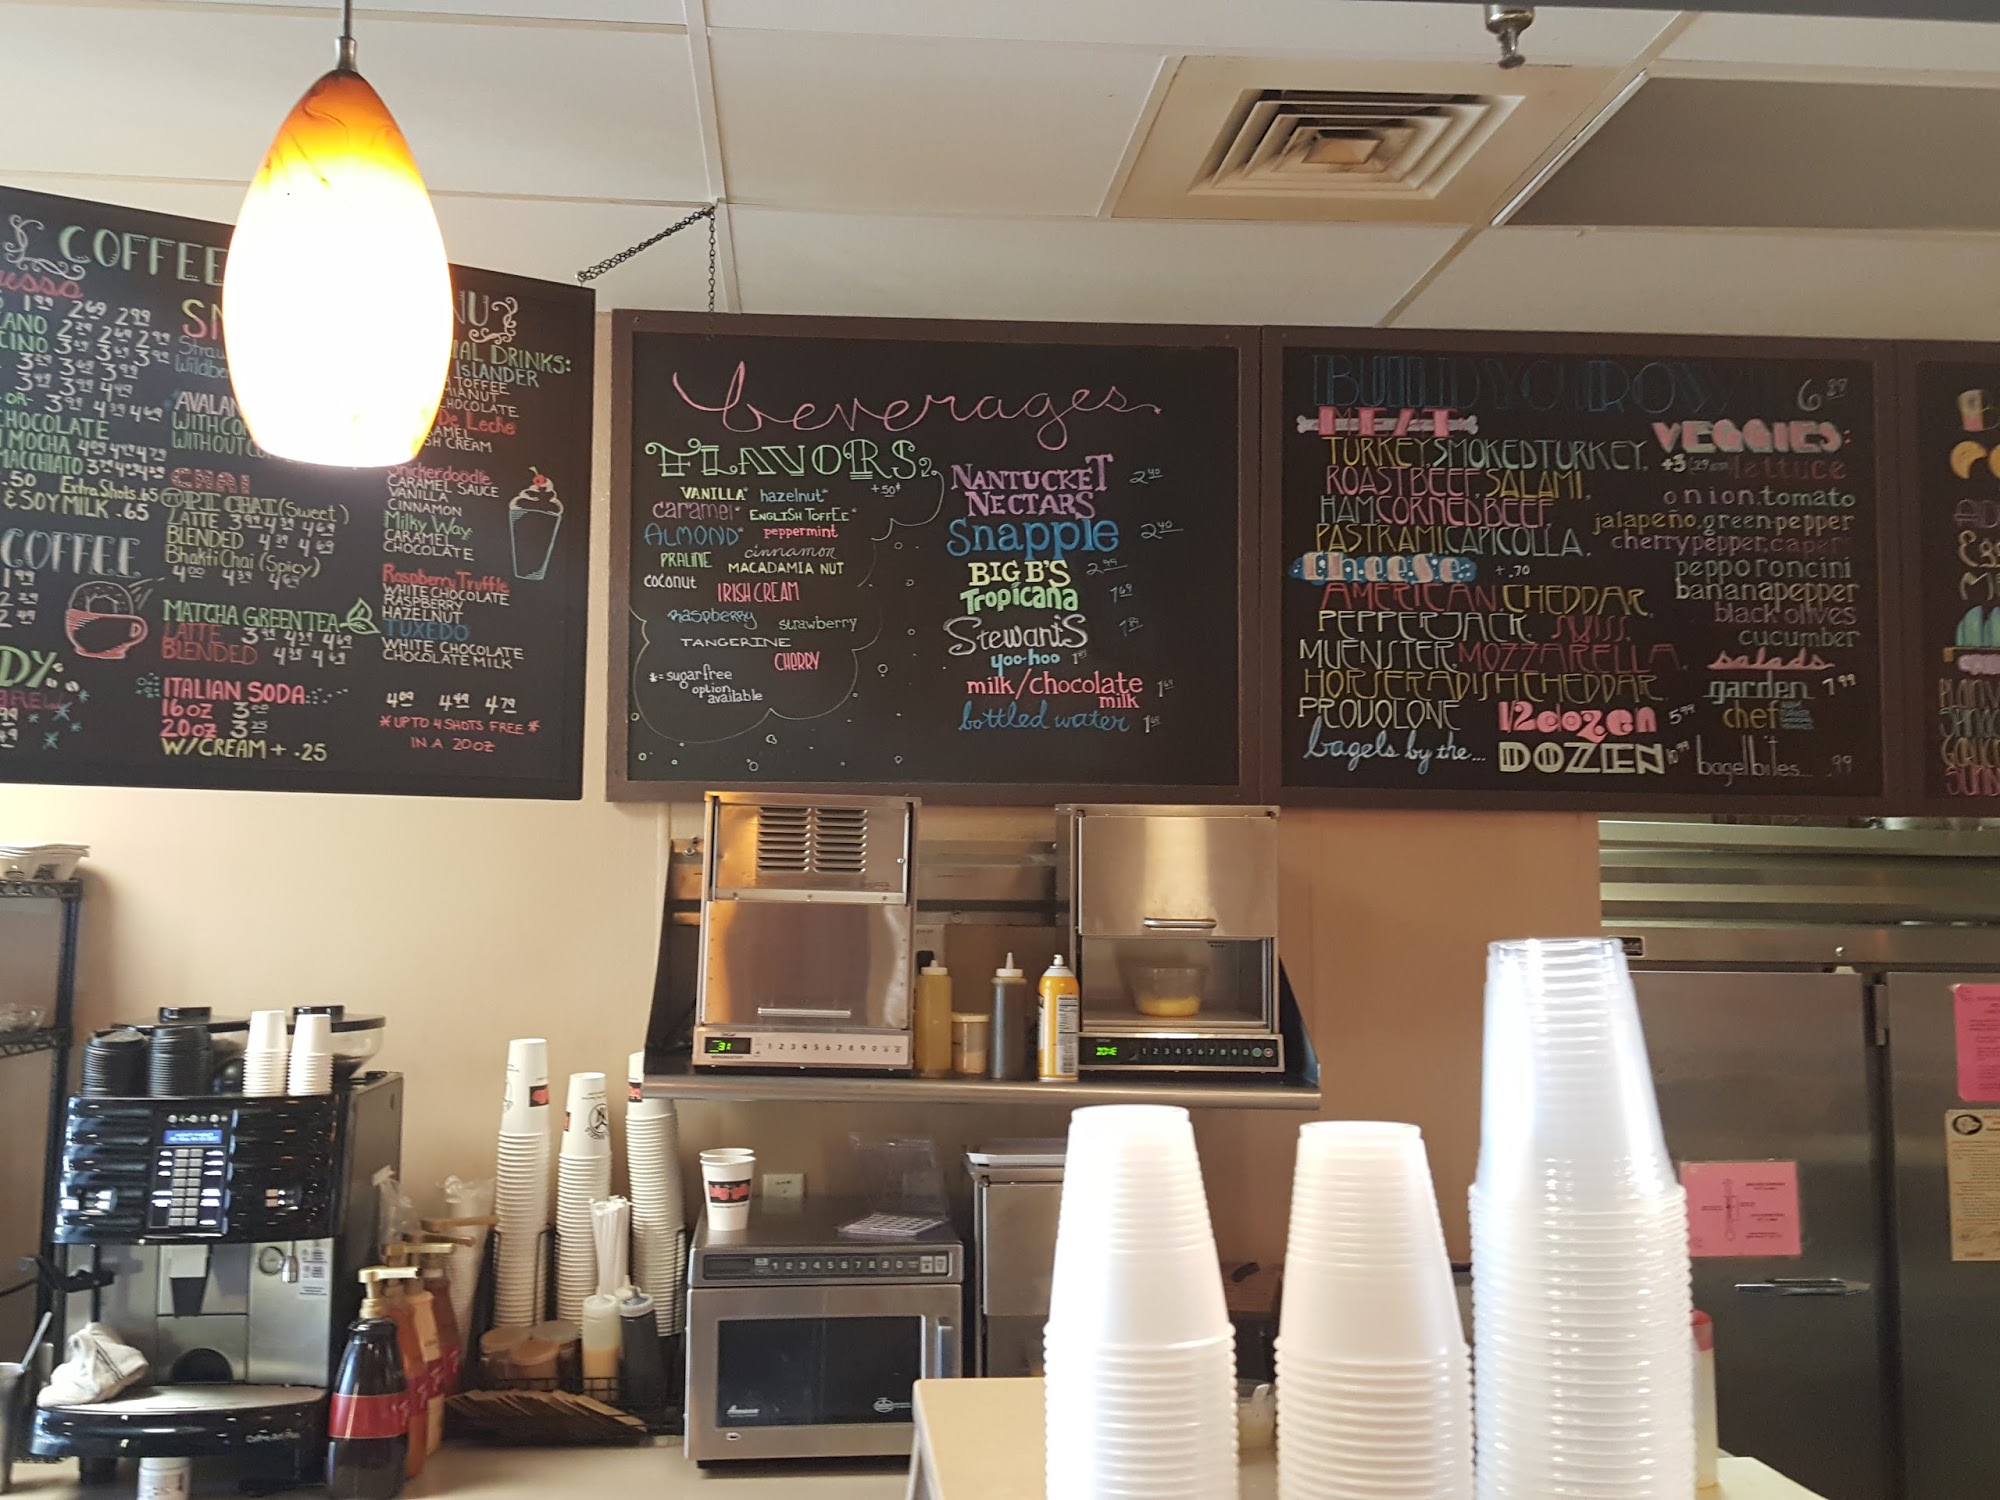 COFFEE
1.99 2.69 2.99
2.29 2.69 2.99
3.29 3.69 3.99
3.29 3.69 3.99
3.99 4.49
-OR- 3.99 4.39 4.69
CHOCOLATE
MOCHA 4.09 4.49 4.79
MACCHIATO
.50 Extra Shots .65
& SOY MILK .65
COFFEE
1.99
2.29
2.49
WITHOUT
CHAI
CHAI (Sweet)
LATTE 3.99 4.39 4.69
BLENDED 4.39 4.69
Bhakti Chai (Spicy)
4.00 4.39 4.69
MATCHA GREEN TEA
LATTE 3.99 4.39 4.69
BLENDED 4.39 4.69
ITALIAN SODA
16oz 3.00
20oz 3.25
W/CREAM + .25
DRINKS:
ISLANDER
TOFFEE
CHOCOLATE
De Leche
CREAM
Snickerdoodle
CARAMEL SAUCE
VANILLA
CINNAMON
Milky Way
CARAMEL
CHOCOLATE
Raspberry Truffle
WHITE CHOCOLATE
RASPBERRY
HAZELNUT
TUXEDO
WHITE CHOCOLATE
CHOCOLATE MILK
4.09 4.49 4.79
*UP TO 4 SHOTS FREE*
IN A 20 OZ
beverages
FLAVORS
+50¢
VANILLA* hazelnut*
caramel* ENGLISH TOFFEE*
ALMOND* peppermint
PRALINE cinnamon
MACADAMIA NUT
coconut IRISH CREAM
Raspberry strawberry
TANGERINE
CHERRY
*= sugar free
option
available
NANTUCKET
NECTARS 2.40
Snapple 2.40
BIG B'S 2.99
Tropicana 1.69
Stewart's 1.89
yoo-hoo
milk/chocolate
milk 1.69
bottled water 1.69
BUILD YOUR OWN 6.89
MEAT
TURKEY, SMOKED TURKEY,
ROAST BEEF, SALAMI,
HAM, CORNED BEEF,
PASTRAMI, CAPICOLLA,
cheese +.70
AMERICAN, CHEDDAR,
PEPPERJACK, SWISS,
MUENSTER, MOZZARELLA,
HORSERADISH CHEDDAR,
PROVOLONE
bagels by the...
1/2 dozen 5.99
DOZEN 10.99
VEGGIES:
lettuce
onion, tomato
jalapeño, green pepper
cherry pepper, caper
pepporoncini
banana pepper
black olives
cucumber
salads
garden 7.99
chef
bagel bites... .99
1 2 3 4 5 6 7 8 9 0
1 2 3 4 5 6 7 8 9 0
1 2 3 4 5 6 7 8 9 0